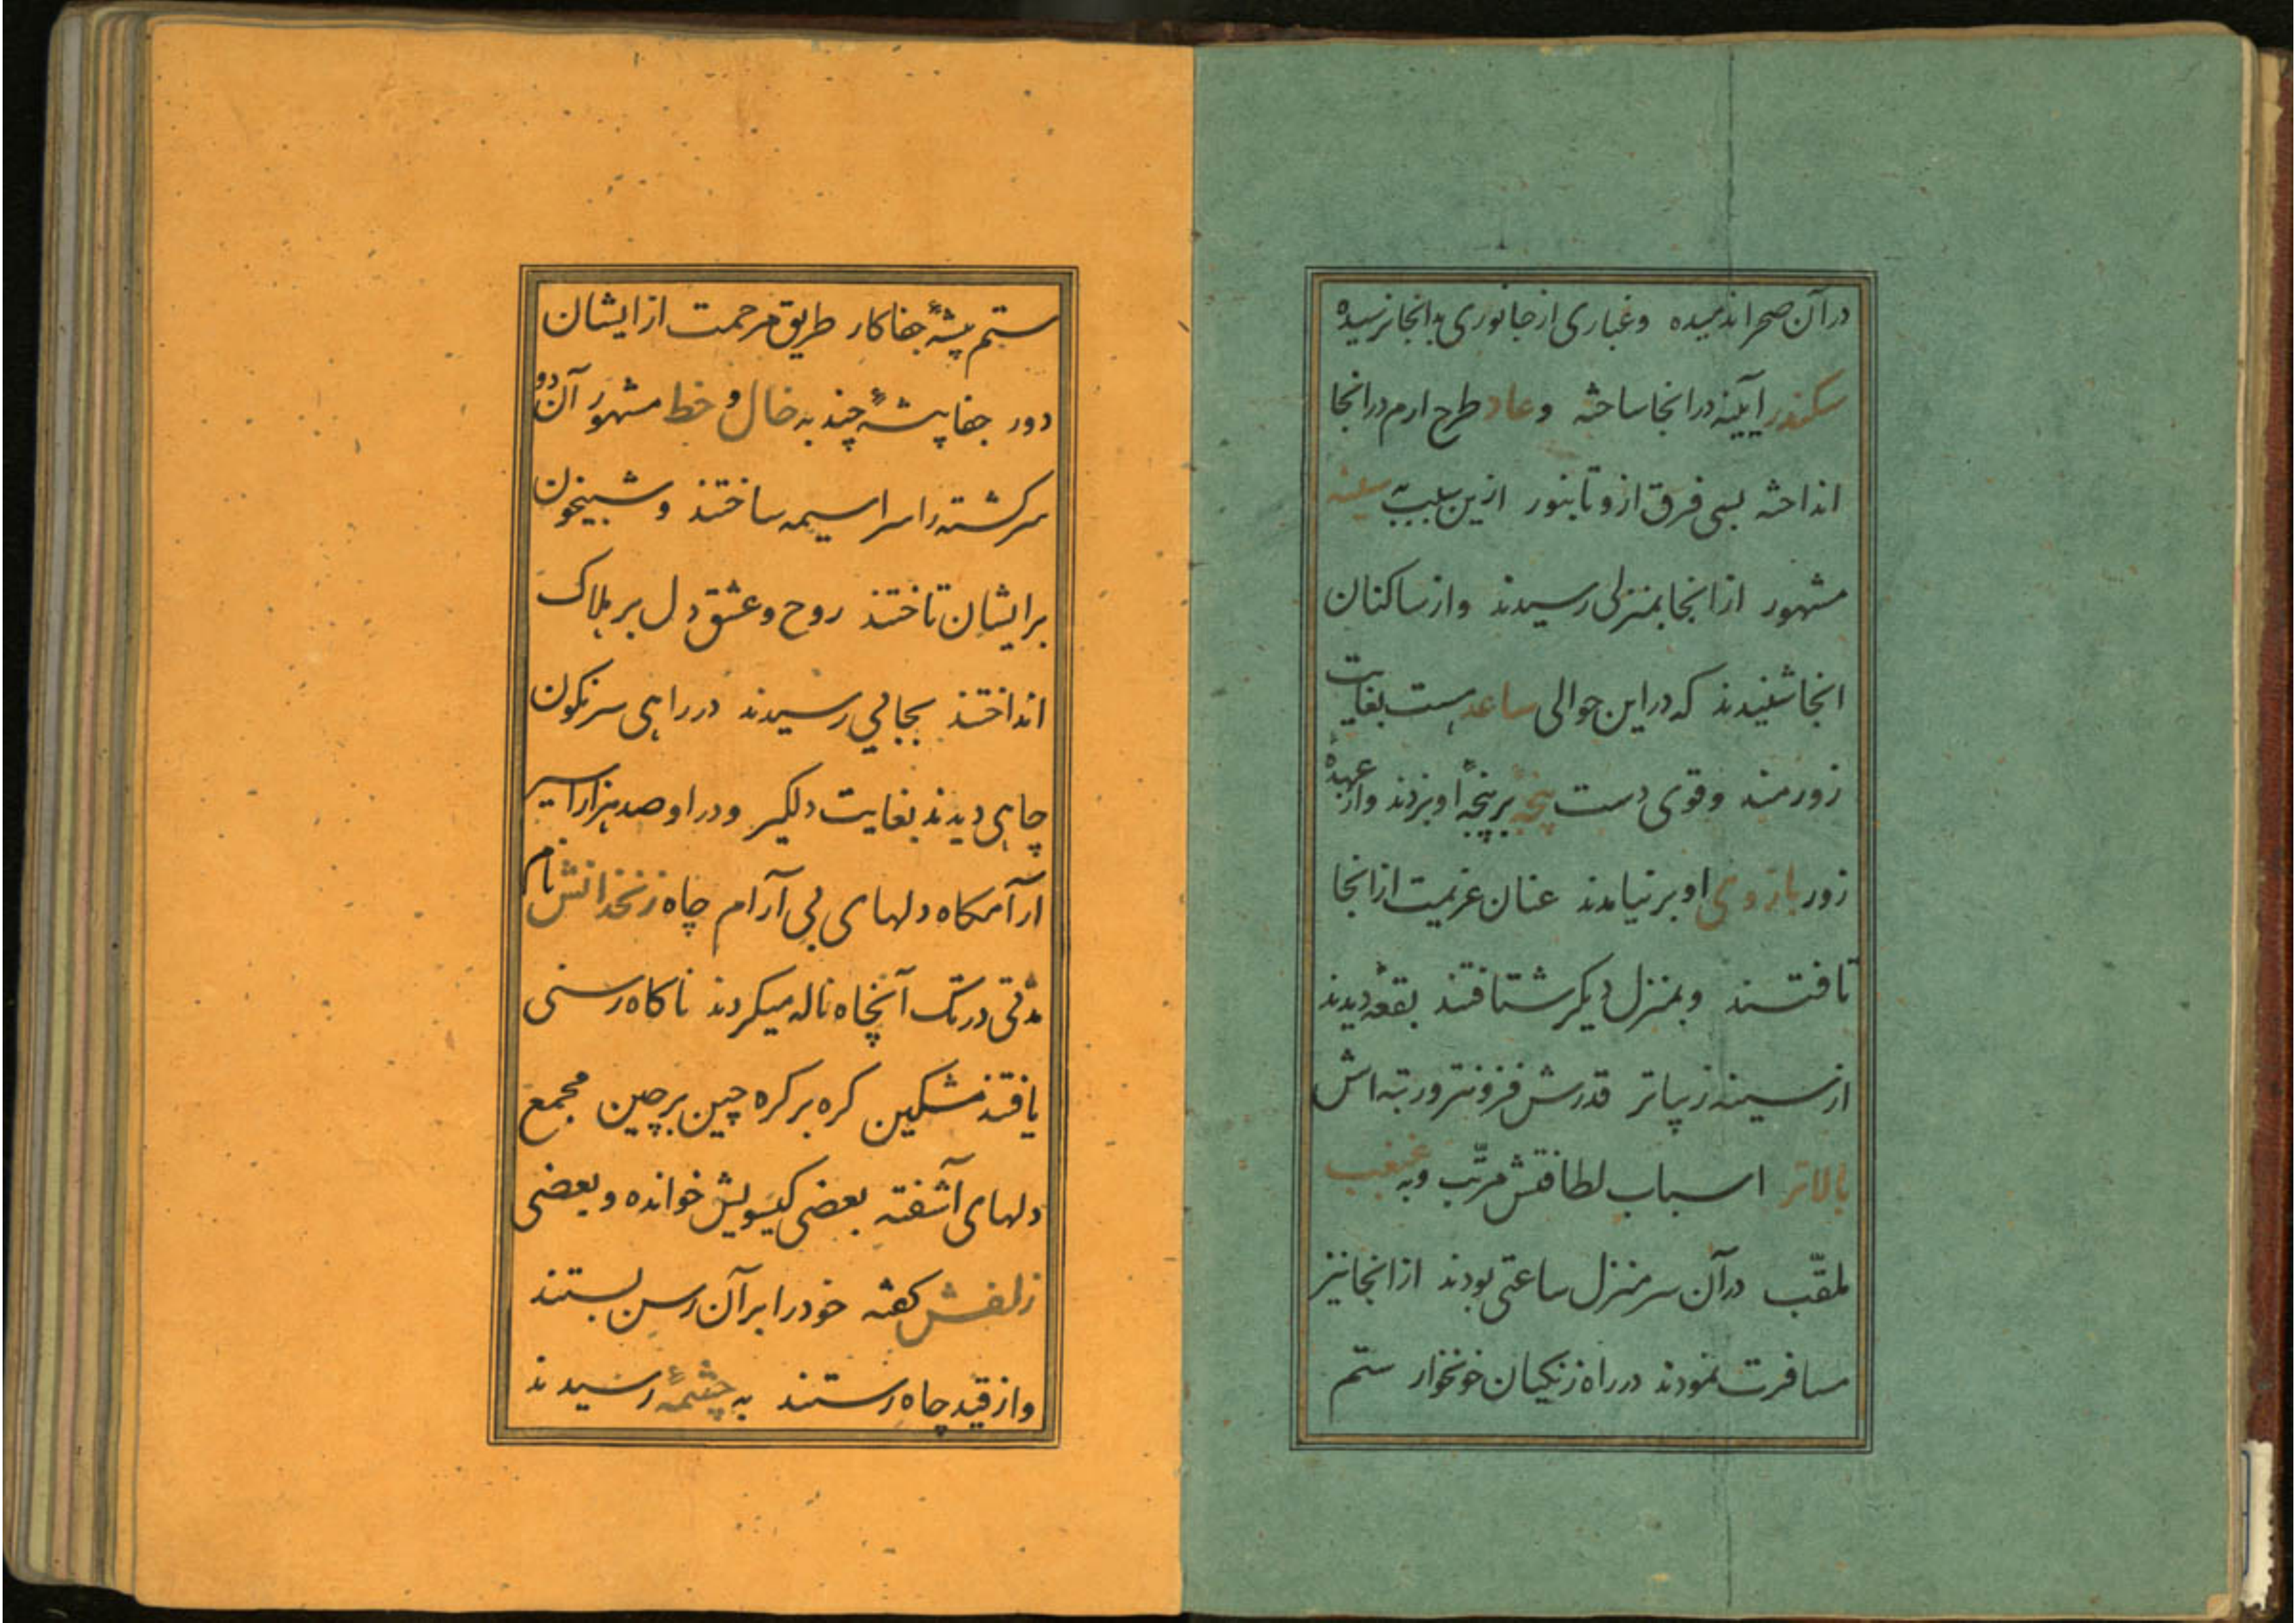 در آن صحرا ندمیده وغباری از جانوری به انجا نرسیده
سکندر ایینه در انجا ساخته وعاد طرح ارم در انجا
انداخته بسی فرق ازو تا بنور ازین سبب به سینه
مشهور از انجا بمنزلی رسیدند واز ساکنان
انجا شنیدند که در این حوالی ساعد هست بغایت
زورمند وقوی دست پنجهٔ بر پنجهٔ او بردند واز عهدهٔ
زور بازوی او بر نیامدند عنان عزیمت از انجا
تافتند وبمنزل دیکر شتافتند بقعهٔ دیدند
از سینه زیباتر قدرش فزونتر ورتبه اش
بالاتر اسباب لطافتش مرتّب وبه غبغب
ملقّب در آن سر منزل ساعتی بودند از انجا نیز
مسافرت نمودند در راه زنکیان خونخوار ستم
ستم پیشهٔ جفا کار طریق مرحمت از ایشان
دور جفا پیشهٔ چند به خال و خط مشهور آن دو
سرکشته را سراسیمه ساختند وشبیخون
بر ایشان تاختند روح وعشق دل بر هلاک
انداختند بجایی رسیدند در راهی سرنکون
چاهی دیدند بغایت دلکیر ودر او صد هزار اسیر
آرامکاه دلهای بی آرام چاه زنخدانش نام
مدّتی در تک آنچاه ناله میکردند ناکاه رسنی
یافتند مشکین کره بر کره چین بر چین مجمع
دلهای آشفته بعضی کیسویش خوانده وبعضی
زلفش کفته خود را بر آن رسن بستند
واز قید چاه رستند به چشمهٔ رسیدند